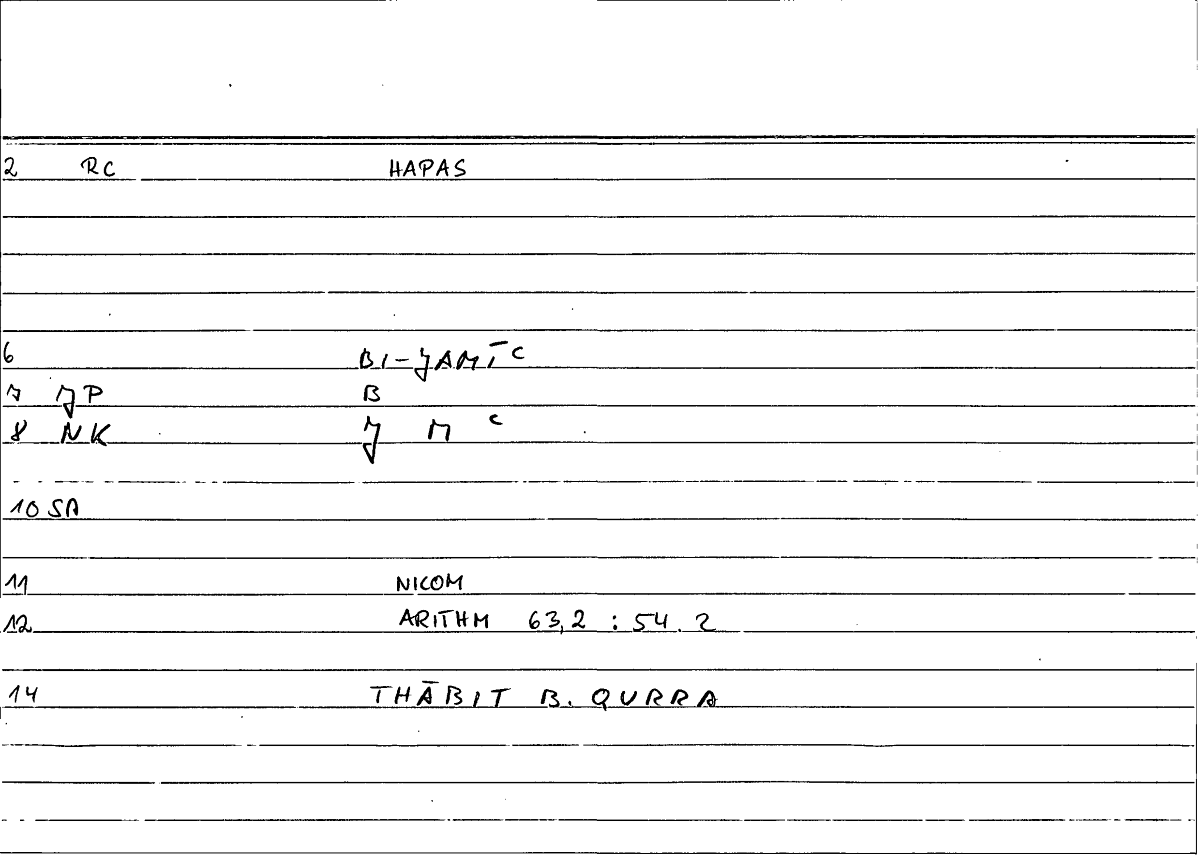 2 RC HAPAS
6 BI-JAMĪ c
7 JP B
8 NK J M c
10 SA
11 NICOM
12 ARITHM 63,2 : 54.2
14 THĀBIT B. QURRA